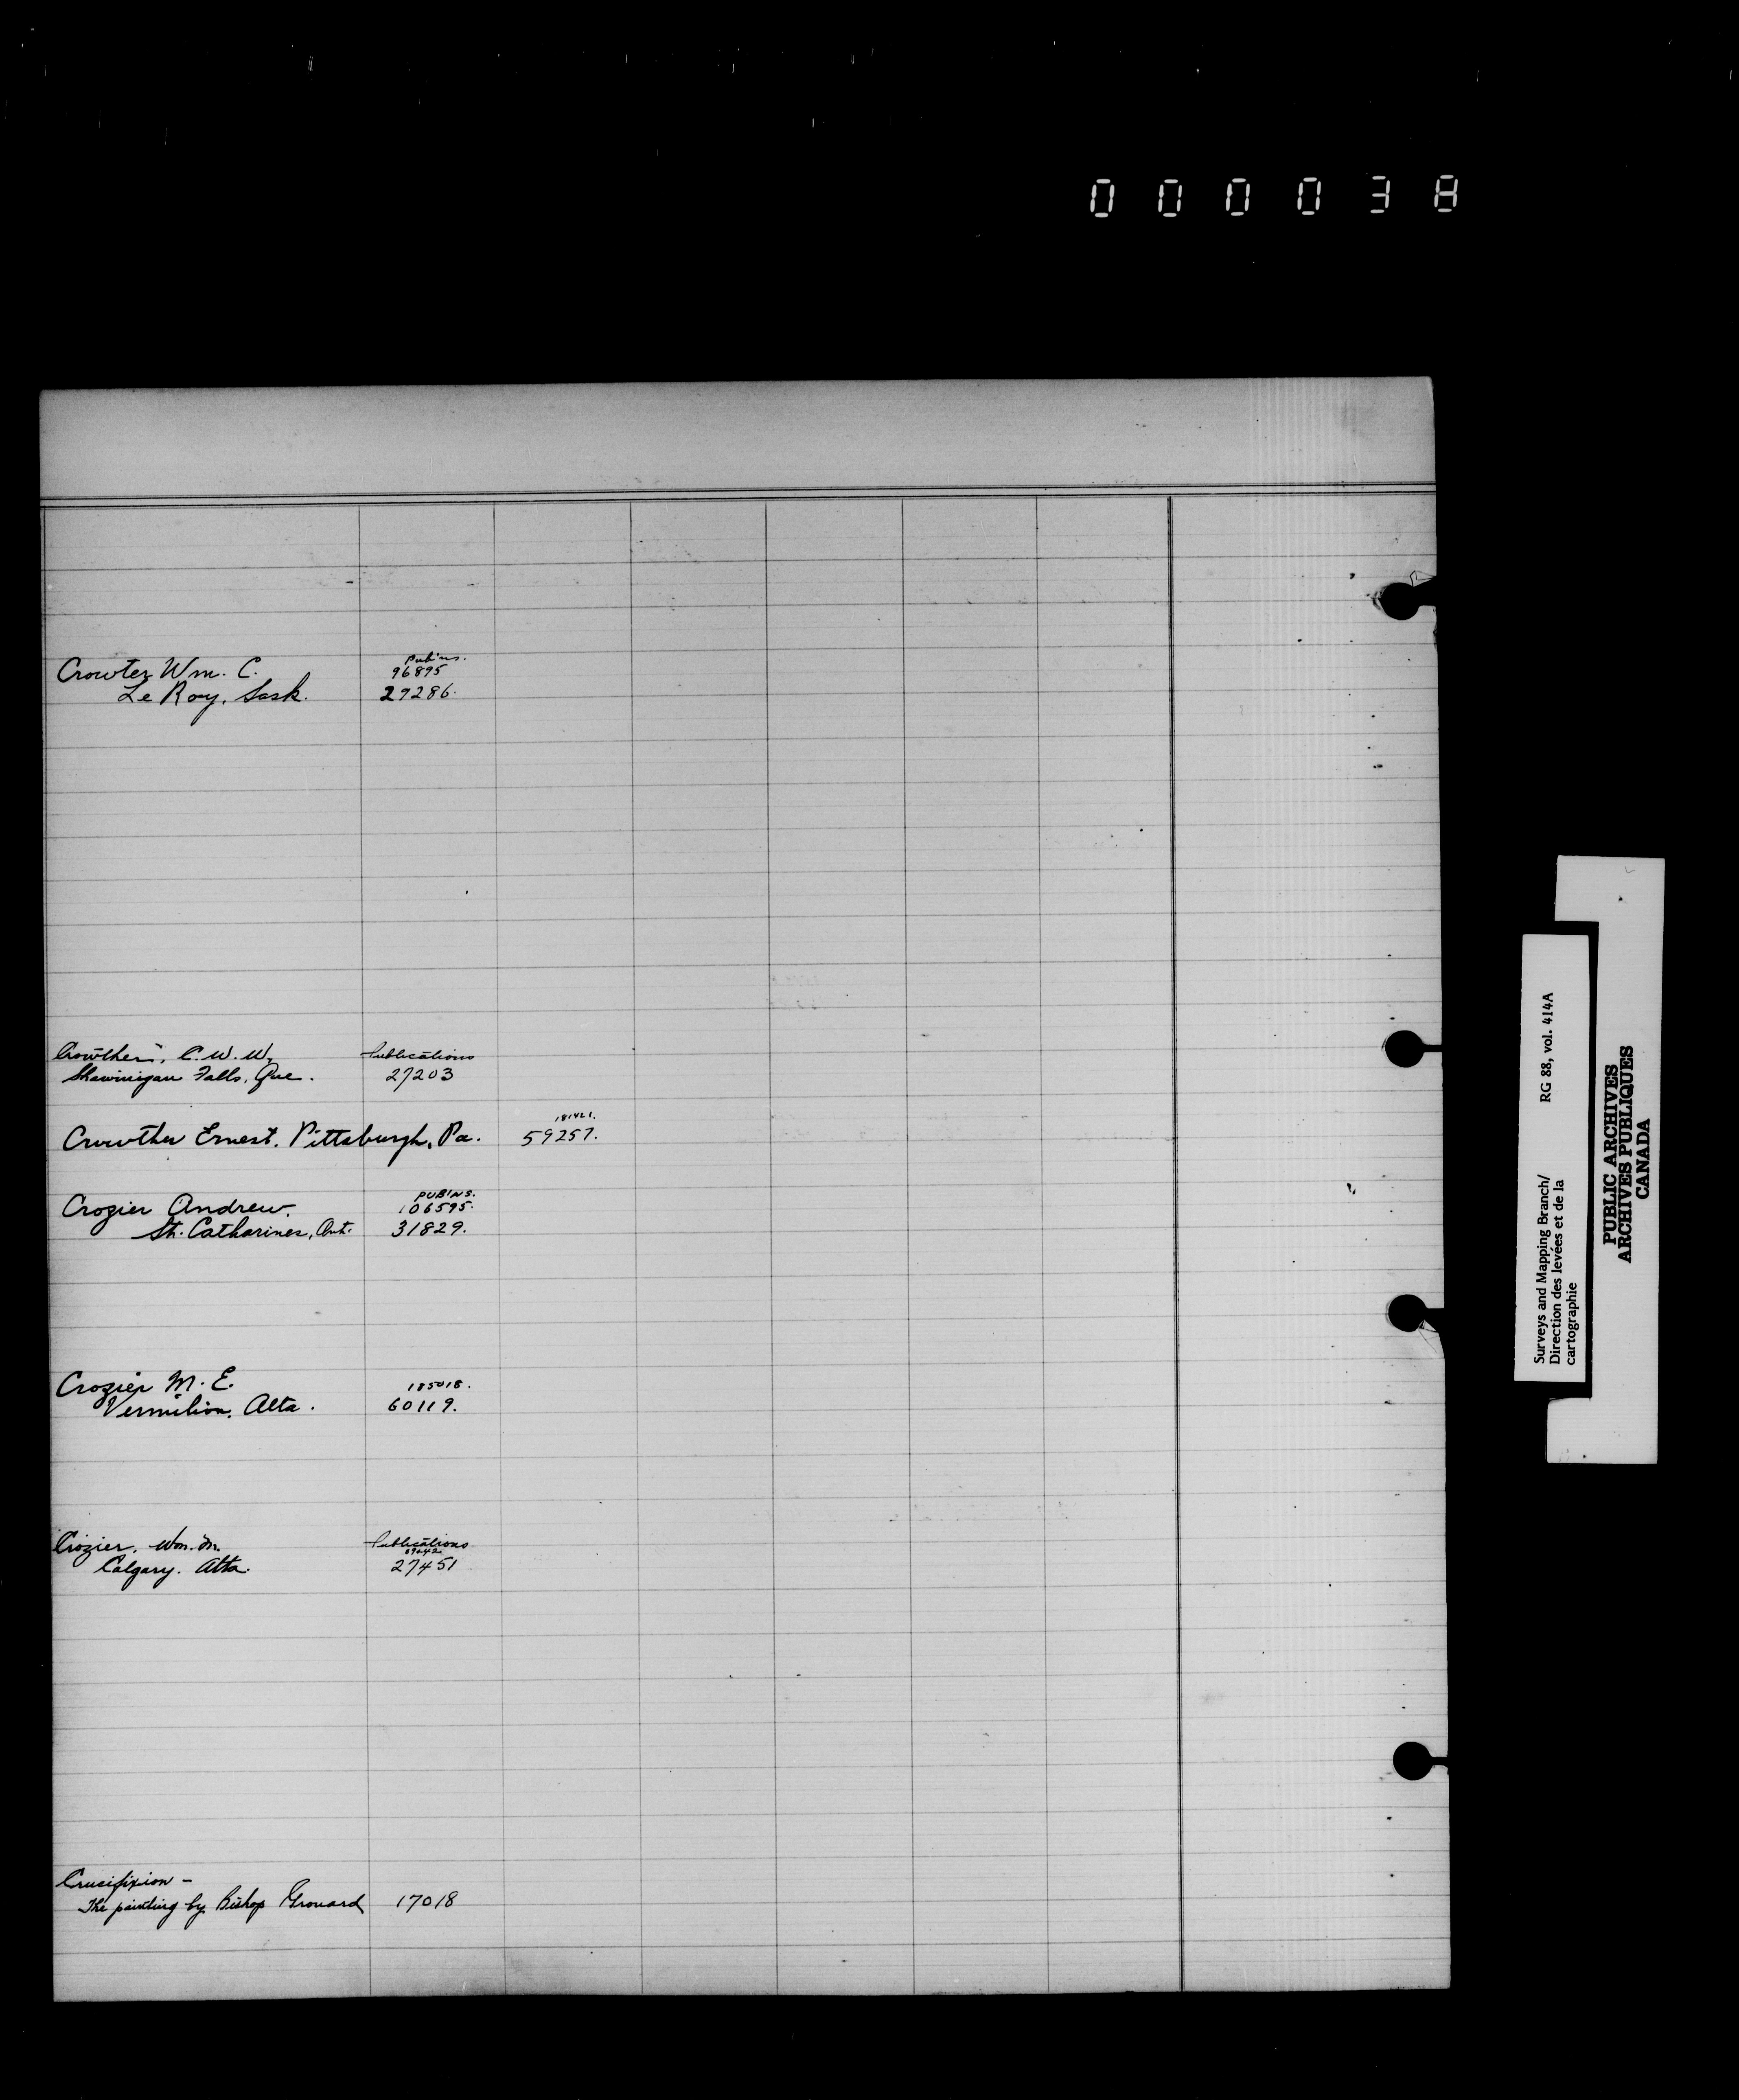 000038
Crowter Wm. C. Pub'ns. 96895
Le Roy, Sask. 27286.
Crowther, C. W. W. Publications
Shawinigan Falls, Que. 27203
Crowther Ernest. Pittsburgh, Pa. 181421. 59257.
Crozier Andrew. PUB'NS. 106595.
St. Catharines, Ont. 31829.
Crozier M. E. 185018.
Vermilion, Alta. 60119.
Crozier, Wm. M. Publications
Calgary. Alta. 27451
Crucifixion -
The painting by Bishop Grouard 17018
Surveys and Mapping Branch/ RG 88, vol. 414A
Direction des levées et de la
cartographie
PUBLIC ARCHIVES
ARCHIVES PUBLIQUES
CANADA